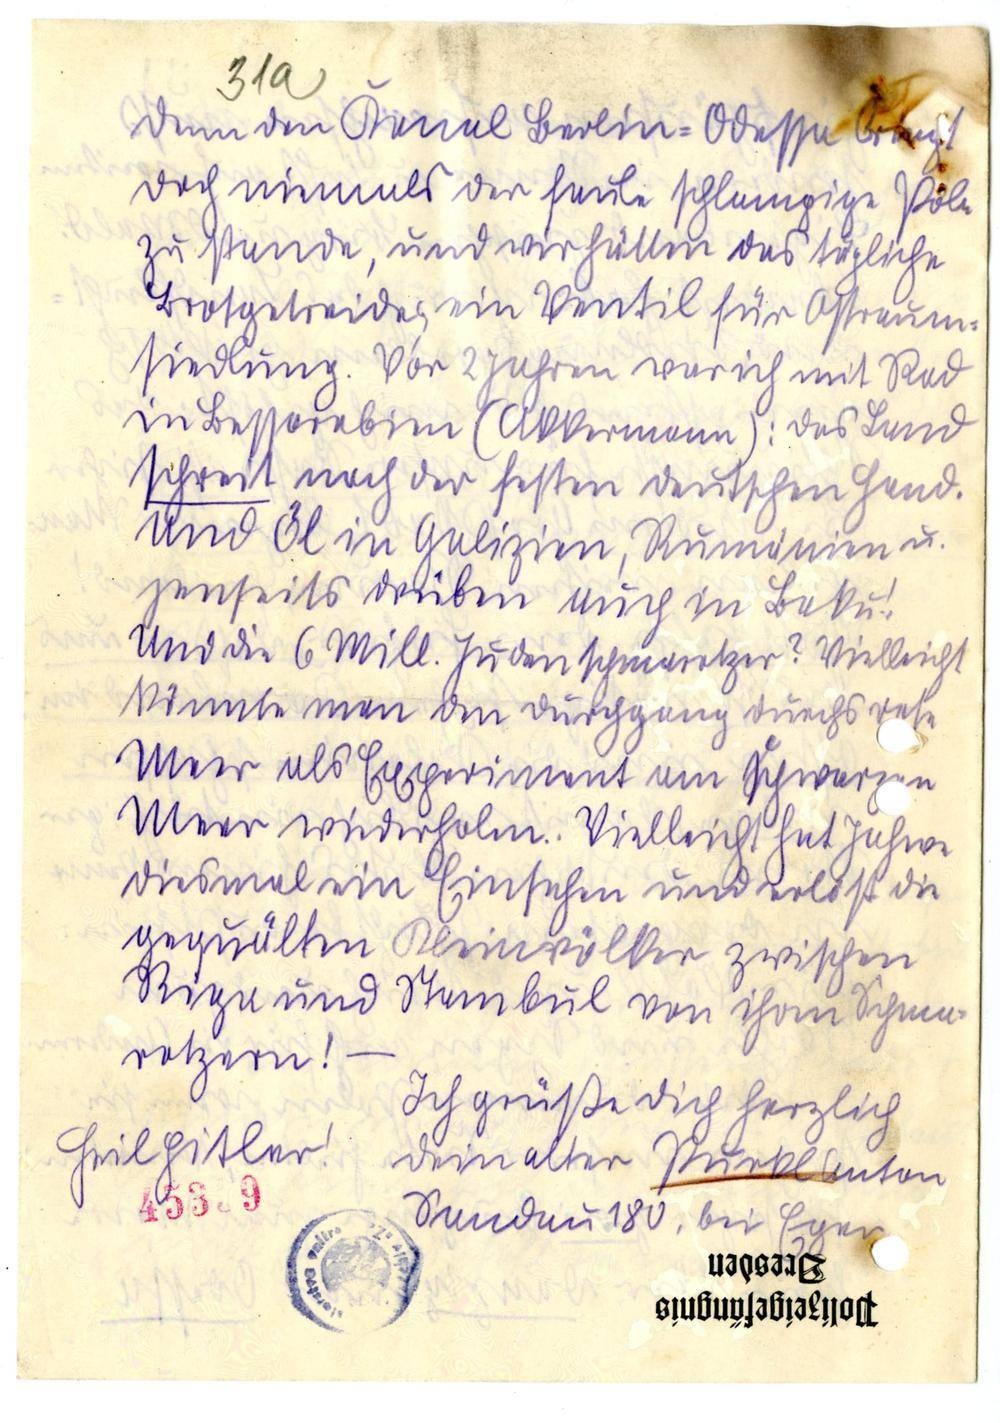 31a
denn den Kanal Berlin=Odessa bringt
doch niemals der faule schlampige Pole
zu stande, und wir hätten das tägliche
Brotgetreide, ein Ventil für Ostraum-
siedlung. Vor 2 Jahren war ich mit Rad
in Bessarabien (Akkermann): das Land
schreit nach der festen deutschen Hand.
Und Öl in Galizien, Rumänien u.
jenseits drüben auch in Baku!
Und die 6 Mill. Judenschmarotzer? Vielleicht
könnte man den Durchgang durchs rote
Meer als Experiment am Schwarzen
Meer wiederholen. Vielleicht hat Jahwe
diesmal ein Einsehen und erlöst die
gequälten Kleinvölker zwischen
Riga und Stambul von ihren Schma-
rotzern! —
Ich grüße Dich herzlich
Heil Hitler! dein alter Anton
453 9
Sandau 180, bei Eger
Polizeigefängnis
Dresden